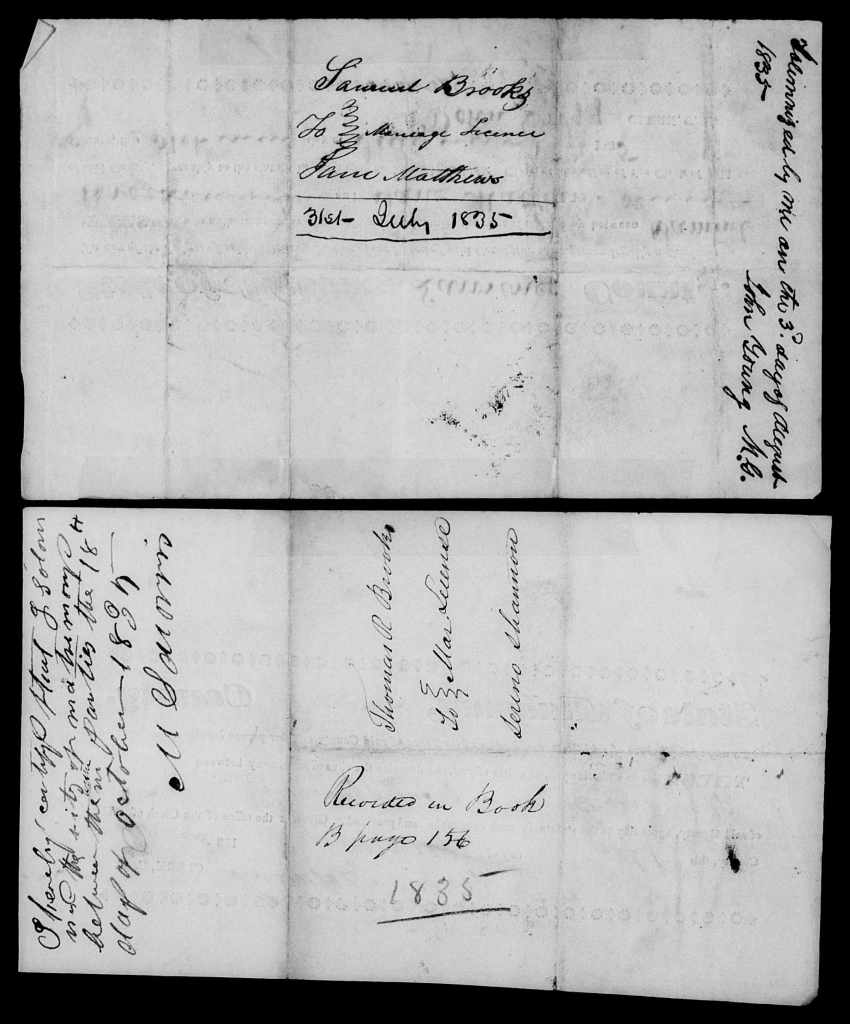 Samuel Brooks
To Marriage Licence
Jane Matthews
31st July 1835
Solemnized by me on the 3d day of August
1835-
John Young M.G.
I hereby certify that I Solom
nis the rits of matrimony
between the within parties the 18th
day of October 1835
M
Thomas R Brooks
To Mar License
Serena Shannon
Recorded in Book
B page 156
1835